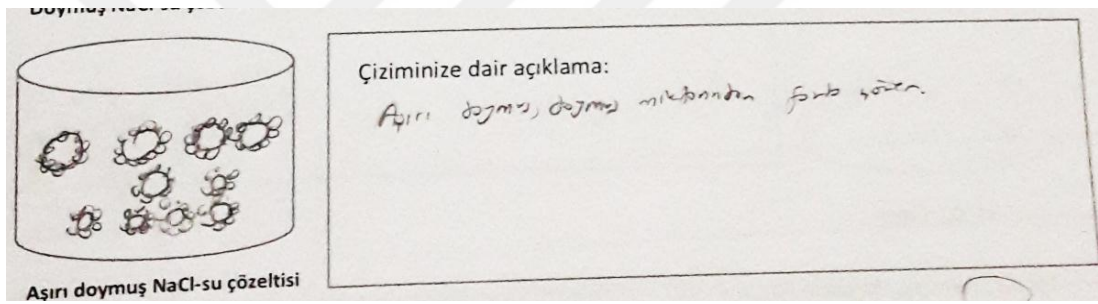 Doymuş NaCl-su çöz
Çiziminize dair açıklama:
Aşırı doymuş, doymuş miktarından fazla çözen.
Aşırı doymuş NaCl-su çözeltisi